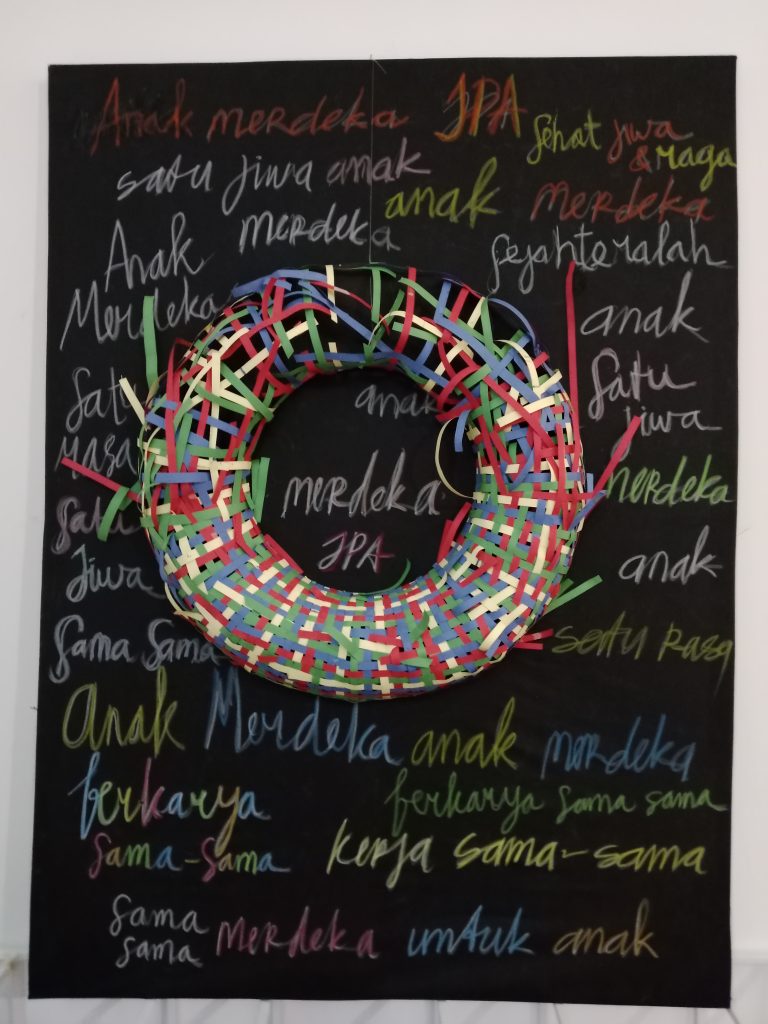 Anak merdeka JPA
sehat jiwa
& raga
satu jiwa anak
anak merdeka
merdeka
sejahteralah
Anak
Merdeka
anak
satu
jiwa
satu
rasa
anak
merdeka
merdeka
JPA
satu
Jiwa
anak
sama sama
satu rasa
Anak Merdeka anak merdeka
berkarya
berkarya sama sama
sama-sama
kerja sama-sama
sama
sama
merdeka untuk anak